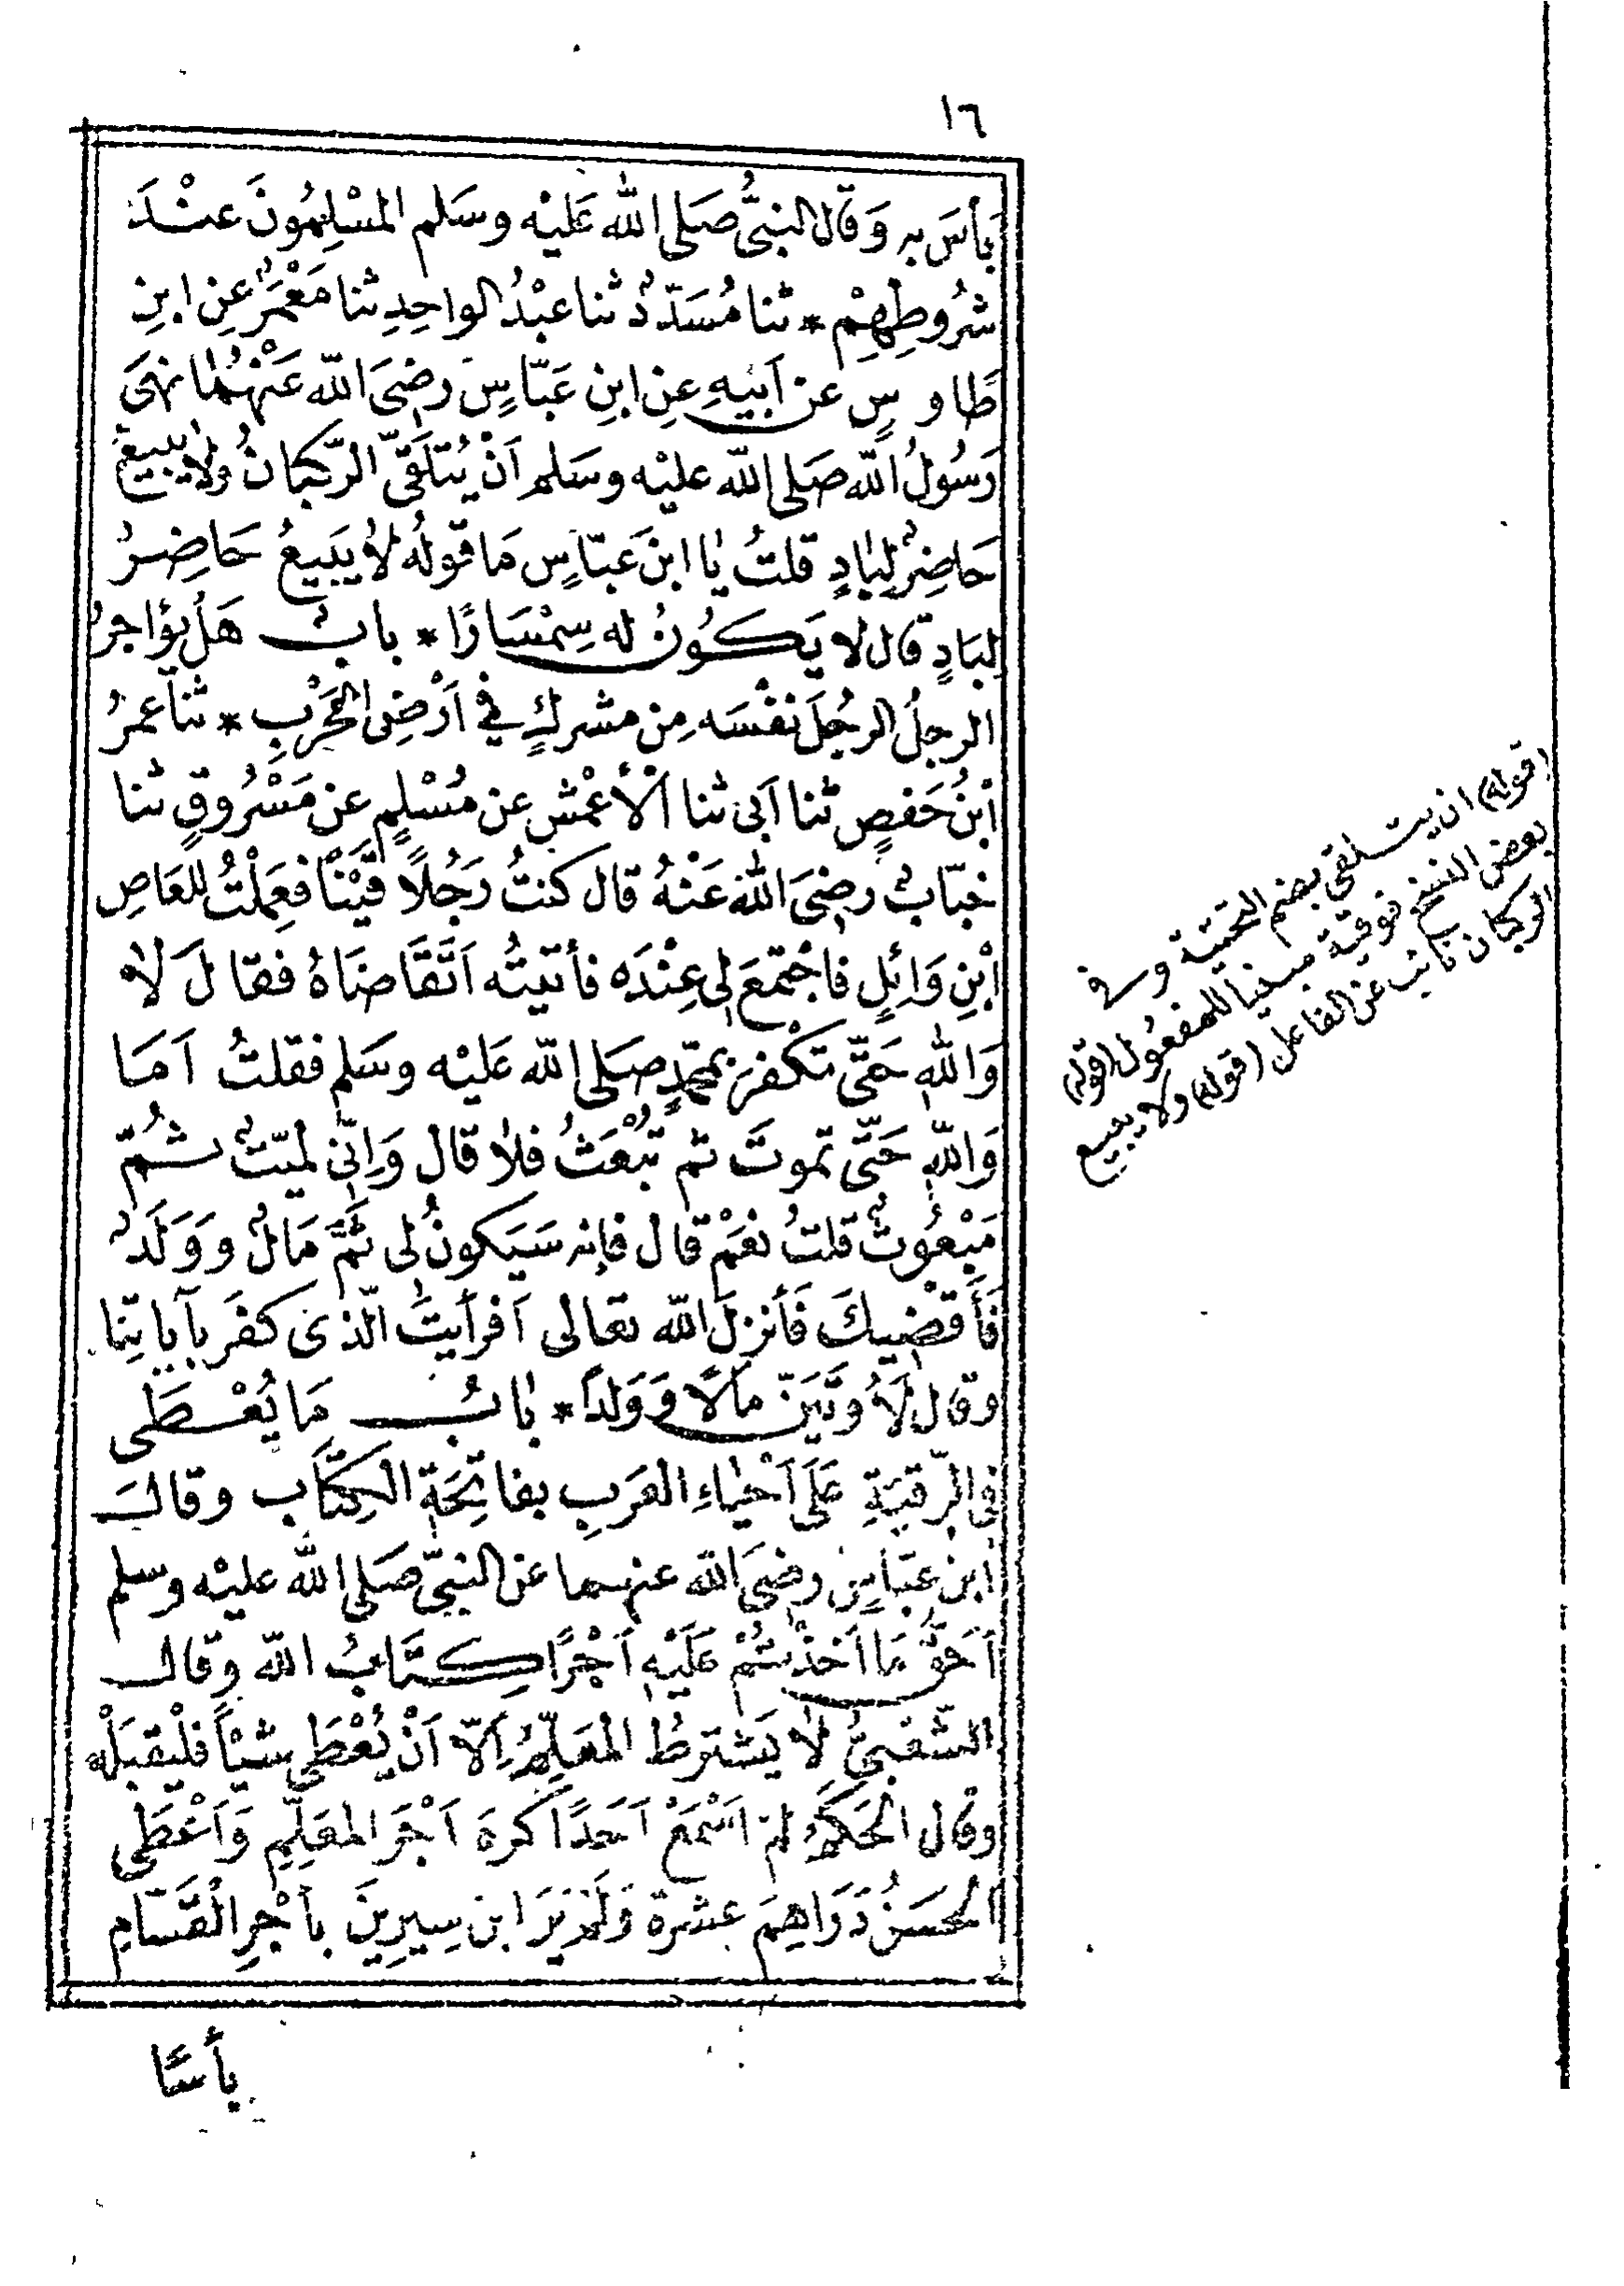 ١٦
بَأسَ به وَقال النبىُّ صَلى الله عَليْه وسَلم المسْلِمُونَ عنْدَ
شُروطِهِمْ * ثنا مُسَدّدٌ ثنا عبْدُ الواحِدِ ثنا مَعْمَرٌ عَنِ ابنِ
طَاوسٍ عن اَبيهِ عنِ ابنِ عَبّاسٍ رضىَ الله عَنْهُما نهىَ
رَسُولُ الله صَلى الله عليْه وسَلم اَنْ يُتلَقّىَ الرّكبانُ ولا يبيعُ
حَاضِرٌ لِبادٍ قلتُ يا ابنَ عَبّاسٍ مَا قولُه لا يَبيعُ حَاضِرٌ
لبَادٍ قال لا يَكُونُ له سِمْسَارًا * بابٌ هَلْ يؤاجرُ
الرجلُ نفْسَه مِن مشركٍ في اَرْضِ الحَرْبِ * ثنا عمرُ
ابْنُ حَفصٍ ثنا اَبى ثنا الأعْمَشِ عن مُسْلِمٍ عن مَسْرُوقٍ ثنا
خبّابٌ رضىَ اللهُ عَنْهُ قال كنتُ رَجُلاً قَيْنًا فعَمِلْتُ للعَاصِ
ابْنِ وَائِلٍ فاجْتمعَ لى عِنْدَه فأتيتُه اَتَقَاضَاهُ فقالَ لا
وَاللهِ حَتّى تكْفرَ بمحمّدٍ صَلى الله عَليْه وسَلم فقلتُ اَمَا
وَاللهِ حَتّى تموتَ ثم تُبْعَثُ فلا قال وَاِنّى لميّتٌ ثُمّ
مَبْعُوثٌ قلتُ نعَمْ قال فإنه سَيَكونُ لى ثَمَّ مَالٌ وَوَلَدٌ
فَأَقضيكَ فَأنزلَ الله تعالى اَفرأيتَ الّذى كفَر بآياتِنا
وقال لَأُوتَيَنّ مالًا وَوَلدًا * بابُ مَا يُعْطَى
فى الرّقيَةِ عَلَى اَحْياءِ العَرَبِ بفاتِحَةِ الكِتَابِ وقالَ
ابن عبّاسٍ رضىَ الله عنهما عن النبىّ صَلى الله عليْه وسلم
اَحَقُّ مَا اَخذْتُمْ عَلَيْهِ اَجْرًا كِتَابُ الله وقال
الشّعْبىُّ لا يَشترطُ المعَلِّمُ اِلّا اَنْ يُعْطَى شيْأً فليْقبَلْه
وقال الحَكَمُ لمْ اَسْمَعْ اَحَدًا كَرهَ اَجْرَ المعَلِّمِ وَاَعْطَى
الحسَنُ دَرَاهِمَ عشرة وَلَمْ يَرَ ابن سِيرِينَ بأجْرِ القَسّامِ
بأسًا
(قوله) ان يتلقى بضم التحتية وفى
بعض النسخ فوقية مبنيا للمفعول (قوله)
الركبان نائب عن الفاعل (قوله) ولا يبيع